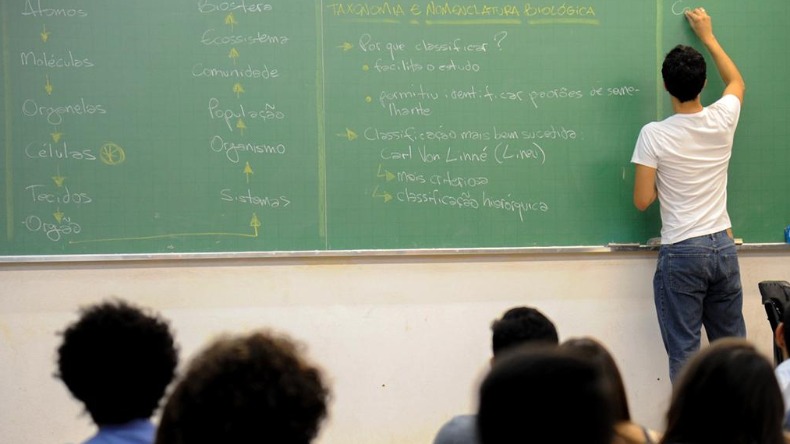 Átomos
Moléculas
Organelas
Células
Tecidos
Órgão
Biosfera
Ecossistema
Comunidade
População
Organismo
Sistemas
TAXONOMIA E NOMENCLATURA BIOLÓGICA
Por que classificar?
facilita o estudo
permitiu identificar padrões de seme-
lhante
Classificação mais bem sucedida
Carl Von Linné (Lineu)
mais criteriosa
classificação hierárquica
Ca